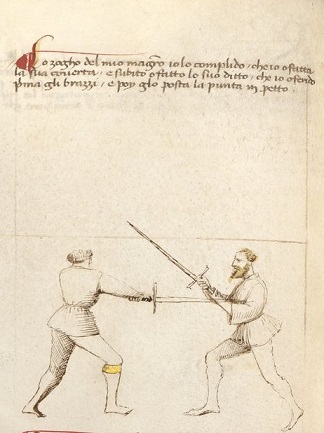 Lo zogho del mio magro io lo complido, che io ofatta
la sua coverta, e subito ofatto lo suo ditto, che io ofendo
prima gli brazzi, e poy glo posta la punta in petto.